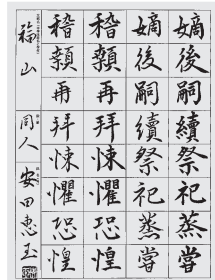 嫡後嗣續祭祀蒸嘗
嫡後嗣續祭祀蒸嘗
稽顙再拜悚懼恐惶
稽顙再拜悚懼恐惶
福山
同人
安田恵玉